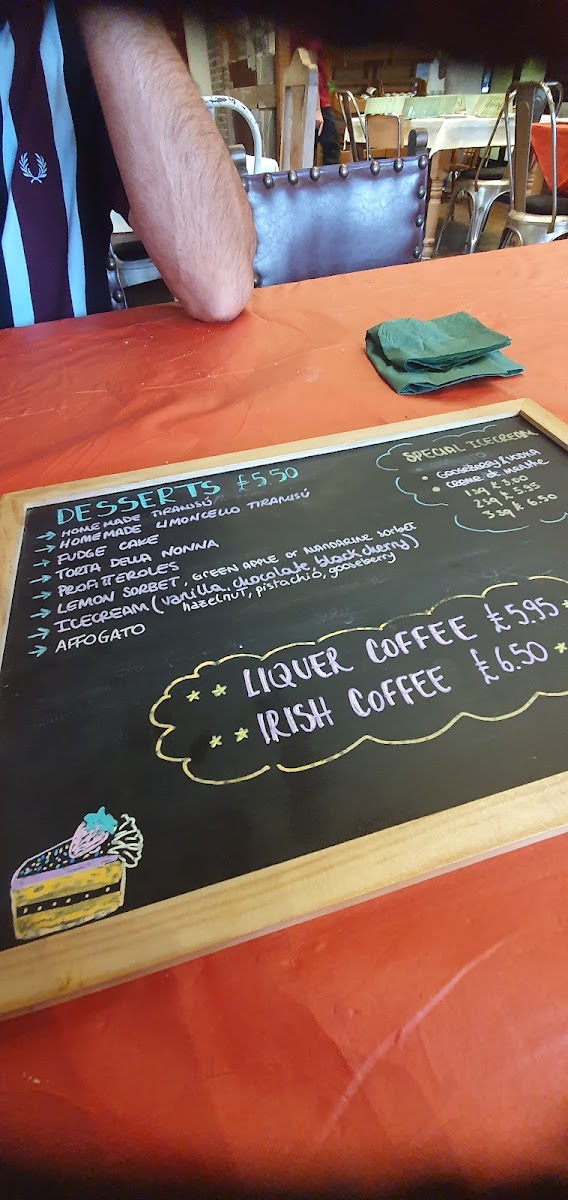 DESSERTS £5.50
→ HOMEMADE TIRAMISÚ
→ HOMEMADE LIMONCELLO TIRAMISÚ
→ FUDGE CAKE
→ TORTA DELLA NONNA
→ PROFITTEROLES
→ LEMON SORBET, GREEN APPLE or MANDARINE sorbet
→ ICECREAM (vanilla, chocolate, black cherry)
hazelnut, pistachió, gooseberry
→ AFFOGATO
SPECIAL ICECREAM
• GOOSEBERRY & VODKA
• CREME de MENTHE
1 3.00
2 5.95
3 £ 6.50
** LIQUER COFFEE £5.95 *
** IRISH COFFEE £6.50 *